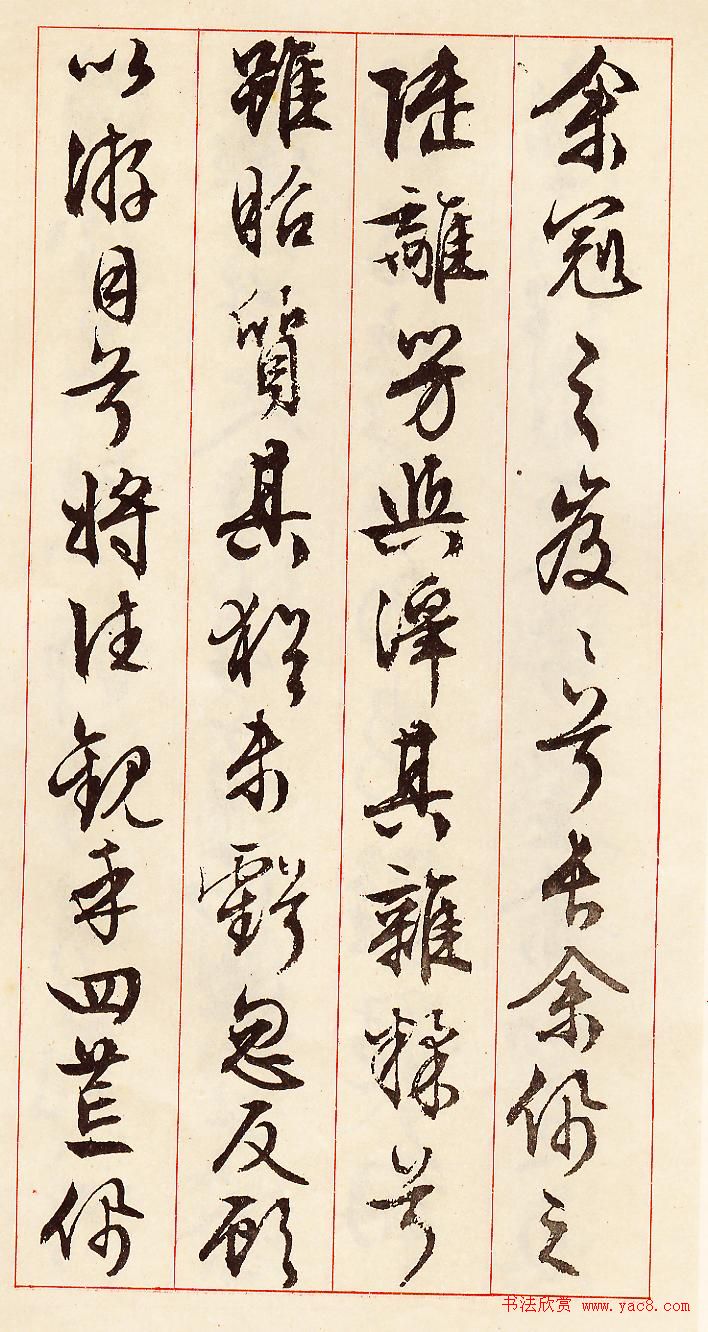 余冠之岌〻兮長余佩之
陸離芳與澤其雜糅兮
雖昭質其猶未虧忽反顧
以游目兮將往觀乎四荒佩
书法欣赏 www.yac8.com